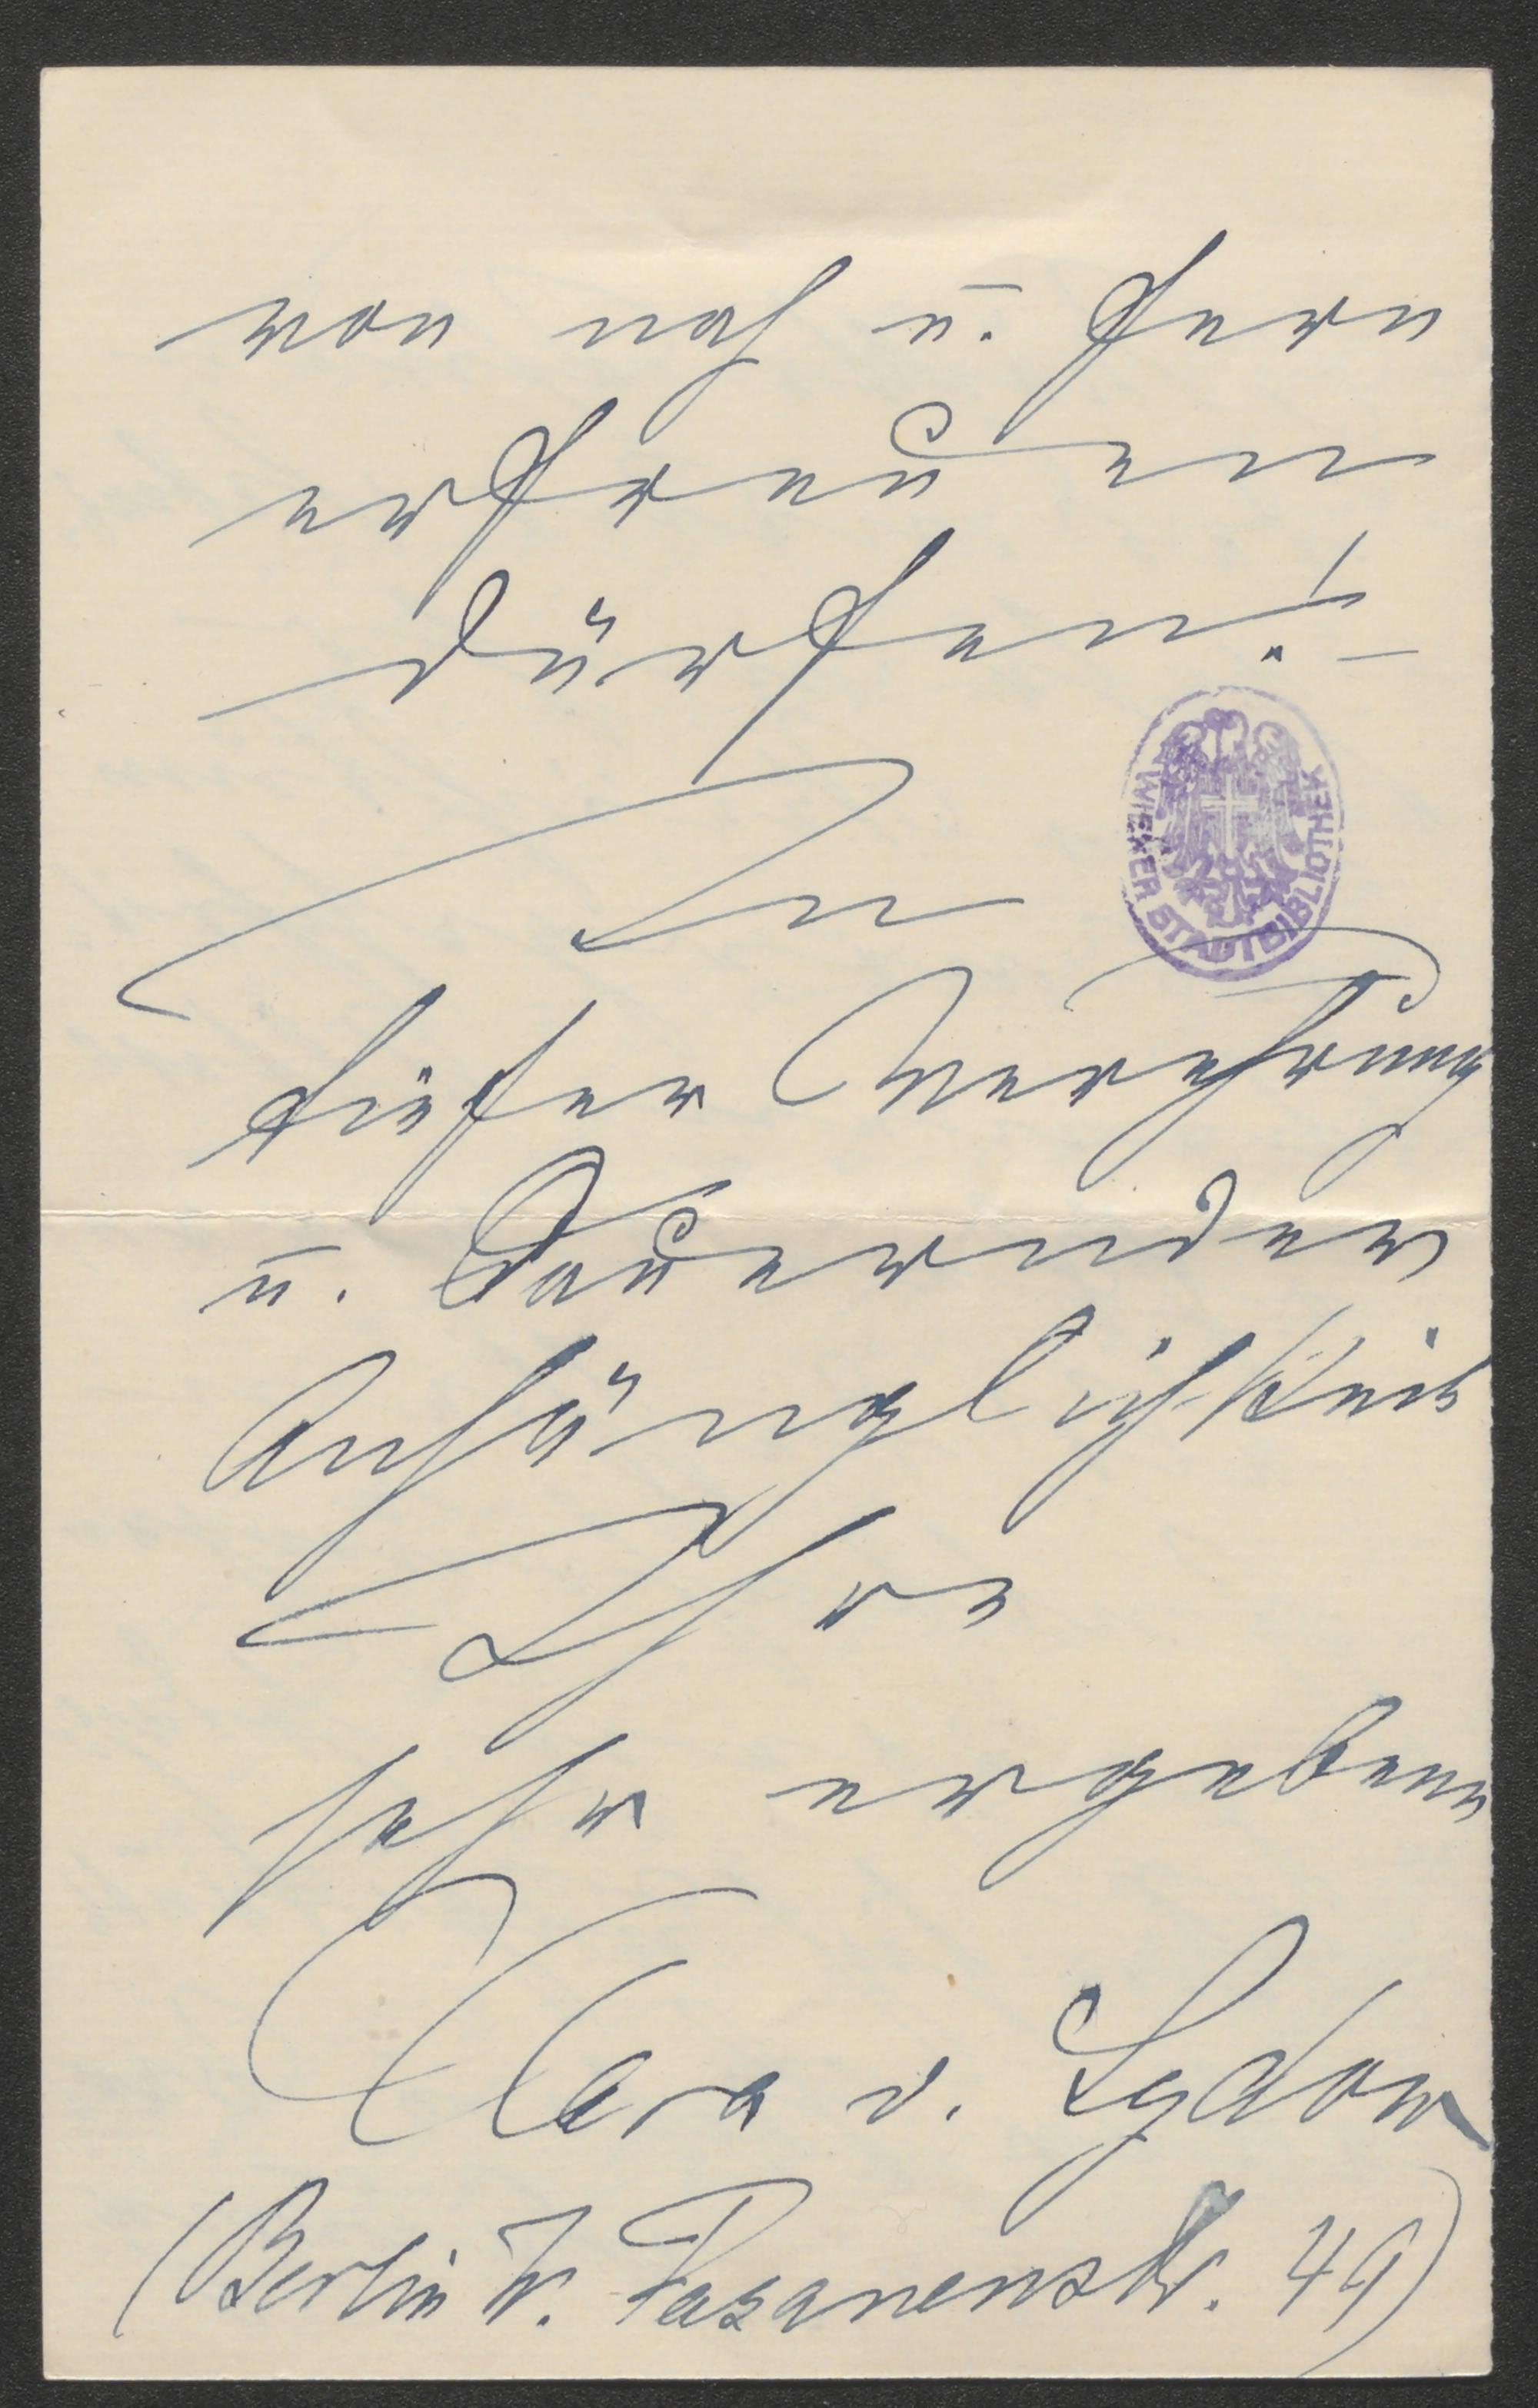 von nah u. fern
erfreuen
dürfen! –
In
tiefer Verehrung
u. dauernder
Anhänglichkeit
Ihre
sehr ergebene
Clara v. Sydow
(Berlin W. Fasanenstr. 49)
WIENER STADTBIBLIOTHEK